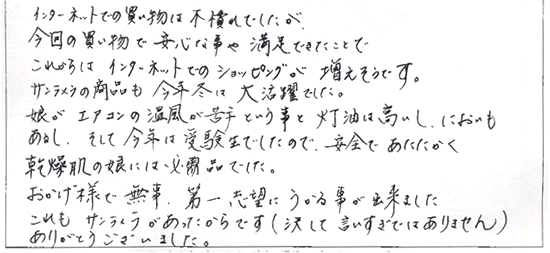 インターネットでの買い物は不慣れでしたが、
今回の買い物で安心な事や満足できたことで
これからはインターネットでのショッピングが増えそうです。
サンラメラの商品も今年冬は大活躍でした。
娘がエアコンの温風が苦手という事と灯油は高いし、においも
あるし、そして今年は受験生でしたので、安全であたたかく
乾燥肌の娘には必需品でした。
おかげ様で無事、第一志望にうかる事が出来ました
これもサンラメラがあったからです(決して言いすぎではありません)
ありがとうございました。